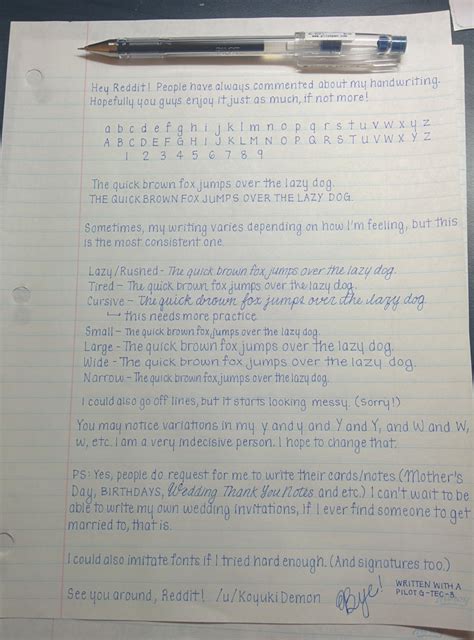 PILOT
Hey Reddit! People have always commented about my handwriting.
Hopefully you guys enjoy it just as much, if not more!
a b c d e f g h i j k l m n o p q r s t u v w x y z
A B C D E F G H I J K L M N O P Q R S T U V W X Y Z
1 2 3 4 5 6 7 8 9
The quick brown fox jumps over the lazy dog.
THE QUICK BROWN FOX JUMPS OVER THE LAZY DOG.
Sometimes, my writing varies depending on how I'm feeling, but this
is the most consistent one.
Lazy/Rushed - The quick brown fox jumps over the lazy dog.
Tired - The quick brown fox jumps over the lazy dog.
Cursive - The quick brown fox jumps over the lazy dog
↳ this needs more practice
Small - The quick brown fox jumps over the lazy dog.
Large - The quick brown fox jumps over the lazy dog.
Wide - The quick brown fox jumps over the lazy dog.
Narrow - The quick brown fox jumps over the lazy dog.
I could also go off lines, but it starts looking messy. (Sorry!)
You may notice variations in my y and y and Y and Y, and W and W,
w, etc. I am a very indecisive person. I hope to change that.
PS: Yes, people do request for me to write their cards/notes. (Mother's
Day, BIRTHDAYS, Wedding Thank You Notes and etc.) I can't wait to be
able to write my own wedding invitations, if I ever find someone to get
married to, that is.
I could also imitate fonts if I tried hard enough. (And signatures too.)
See you around, Reddit! /u/KoyukiDemon
Bye!
WRITTEN WITH A
PILOT G-TEC-3